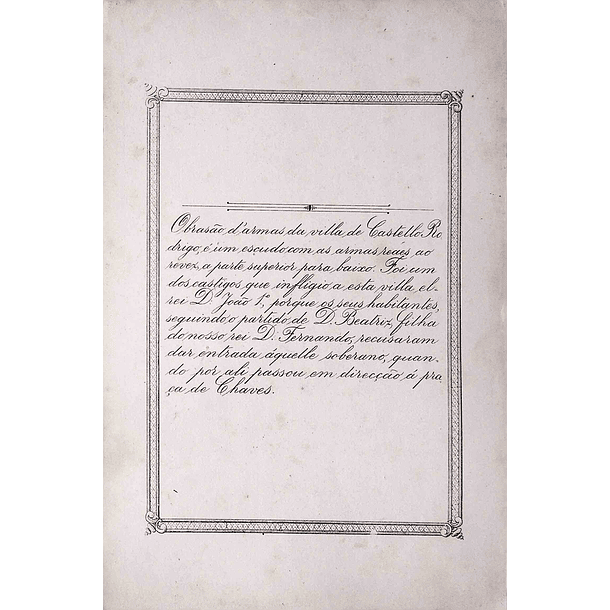 O brasão d'armas da villa de Castello Ro
drigo, é um escudo com as armas reaes, ao
revez, a parte superior para baixo. Foi um
dos castigos que infligio a esta villa el-
rei D. João 1.º, porque os seus habitantes,
seguindo o partido de D. Beatriz, filha
do nosso rei D. Fernando, recusaram
dar entrada áquelle soberano, quan-
do por ali passou em direcção á pra
ça de Chaves.